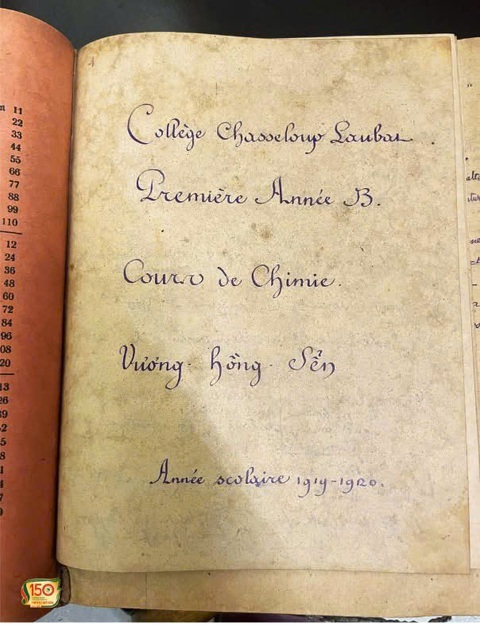 n 11
22
33
44
55
66
77
88
99
110
12
24
36
48
60
72
84
96
08
20
13
26
39
Collège Chasseloup Laubat.
Première Année B.
Cours de Chimie.
Vương-hồng-Sển
Année scolaire 1919-1920.
150